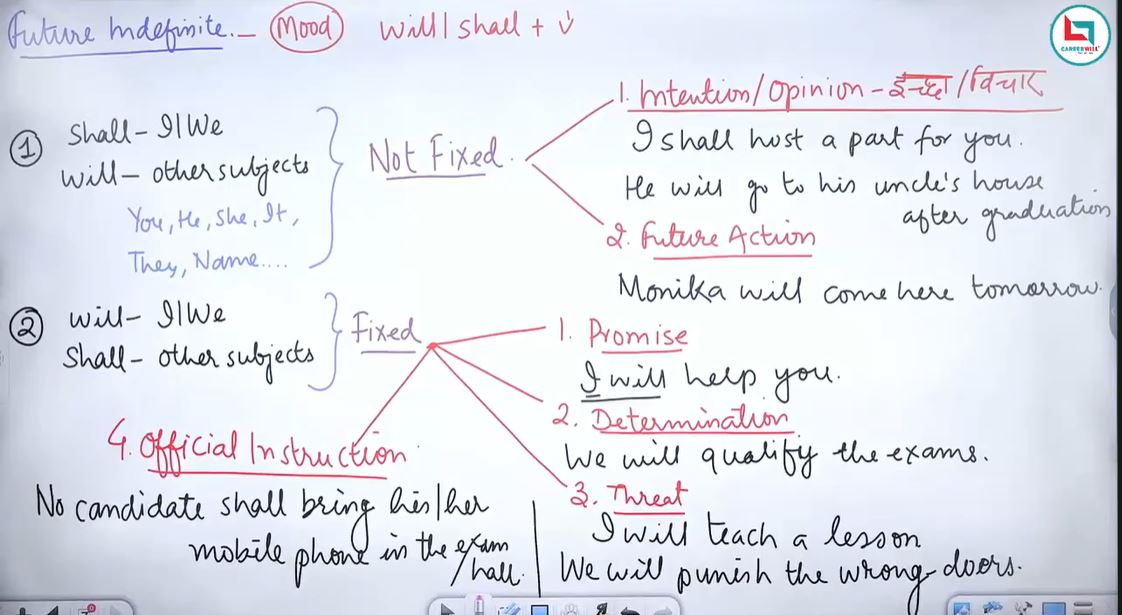 Future Indefinite. – Mood will/shall + V¹
CAREERWILL
① Shall – I/We
will – other subjects
You, He, She, It,
They, Name....
Not Fixed.
1. Intention/Opinion – इच्छा/विचार
I shall host a part for you.
He will go to his uncle's house
after graduation
2. Future Action
Monika will come here tomorrow.
② will – I/We
Shall – other subjects
Fixed
1. Promise
I will help you.
2. Determination
We will qualify the exams.
3. Threat
I will teach a lesson
We will punish the wrong-doers.
4. Official Instruction
No candidate shall bring his/her
mobile phone in the exam
/hall.